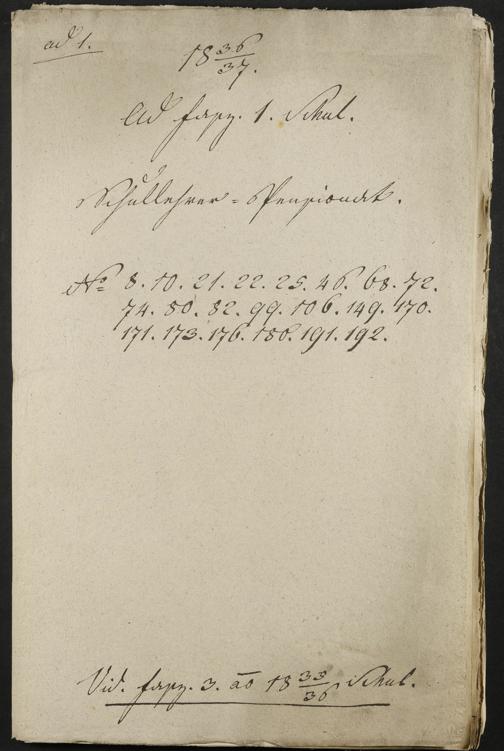 ad 1.
18 36/37.
Ad fasz. 1. Schul.
Schullehrer = Pensionat.
No 8. 10. 21. 22. 25. 46. 68. 72.
74. 80. 82. 99. 106. 149. 170.
171. 173. 176. 186. 191. 192.
Vid. fasz. 3. ao 18 33/36 Schul.